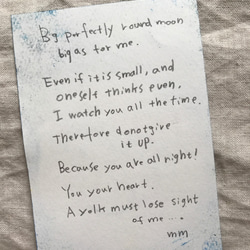 Big perfectly round moon
big as for me.
Even if it is small, and
oneself thinks even,
I watch you all the time.
Therefore donotgive
it up.
Because you are all right!
You your heart.
A yolk must lose sight
of me ....
mm